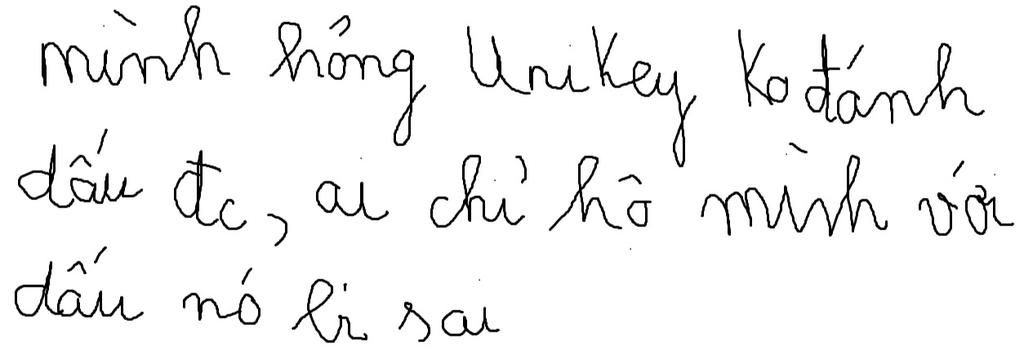 mình hỏng Unikey ko đánh
dấu đc, ai chỉ hộ mình với
dấu nó bị sai